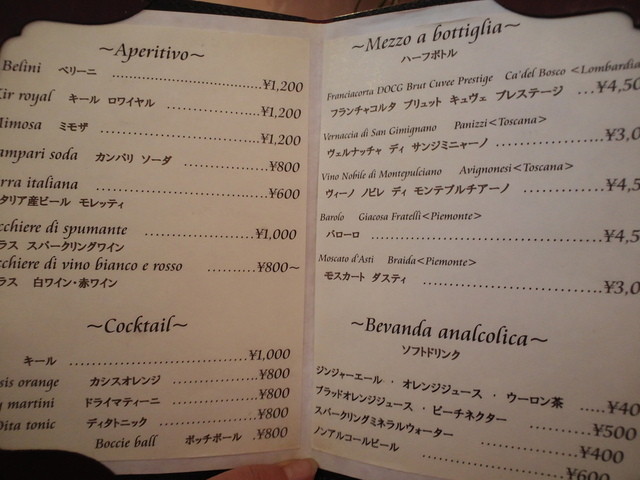 ~Aperitivo~
Belini ベリーニ ¥1,200
Kir royal キール ロワイヤル ¥1,200
Mimosa ミモザ ¥1,200
ampari soda カンパリ ソーダ ¥800
rra italiana ¥600
タリア産ビール モレッティ
cchiere di spumante ¥1,000
ラス スパークリングワイン
cchiere di vino bianco e rosso ¥800~
ラス 白ワイン・赤ワイン
~Cocktail~
キール ¥1,000
sis orange カシスオレンジ ¥800
martini ドライマティーニ ¥800
Dita tonic ディタトニック ¥800
Boccie ball ボッチボール ¥800
~Mezzo a bottiglia~
ハーフボトル
Franciacorta DOCG Brut Cuvee Prestige Ca'del Bosco <Lombardia
フランチャコルタ ブリュット キュヴェ プレステージ ¥4,50
Vernaccia di San Gimignano Panizzi<Toscana>
ヴェルナッチャ ディ サンジミニャーノ ¥3,0
Vino Nobile di Montepulciano Avignonesi<Toscana>
ヴィーノ ノビレ ディ モンテプルチアーノ ¥4,5
Barolo Giacosa Fratelli<Piemonte>
バローロ ¥4,5
Moscato d'Asti Braida<Piemonte>
モスカート ダスティ ¥3,0
~Bevanda analcolica~
ソフトドリンク
ジンジャーエール ・ オレンジジュース ・ ウーロン茶 ¥40
ブラッドオレンジジュース ・ ピーチネクター ¥500
スパークリングミネラルウォーター ¥400
ノンアルコールビール ¥600